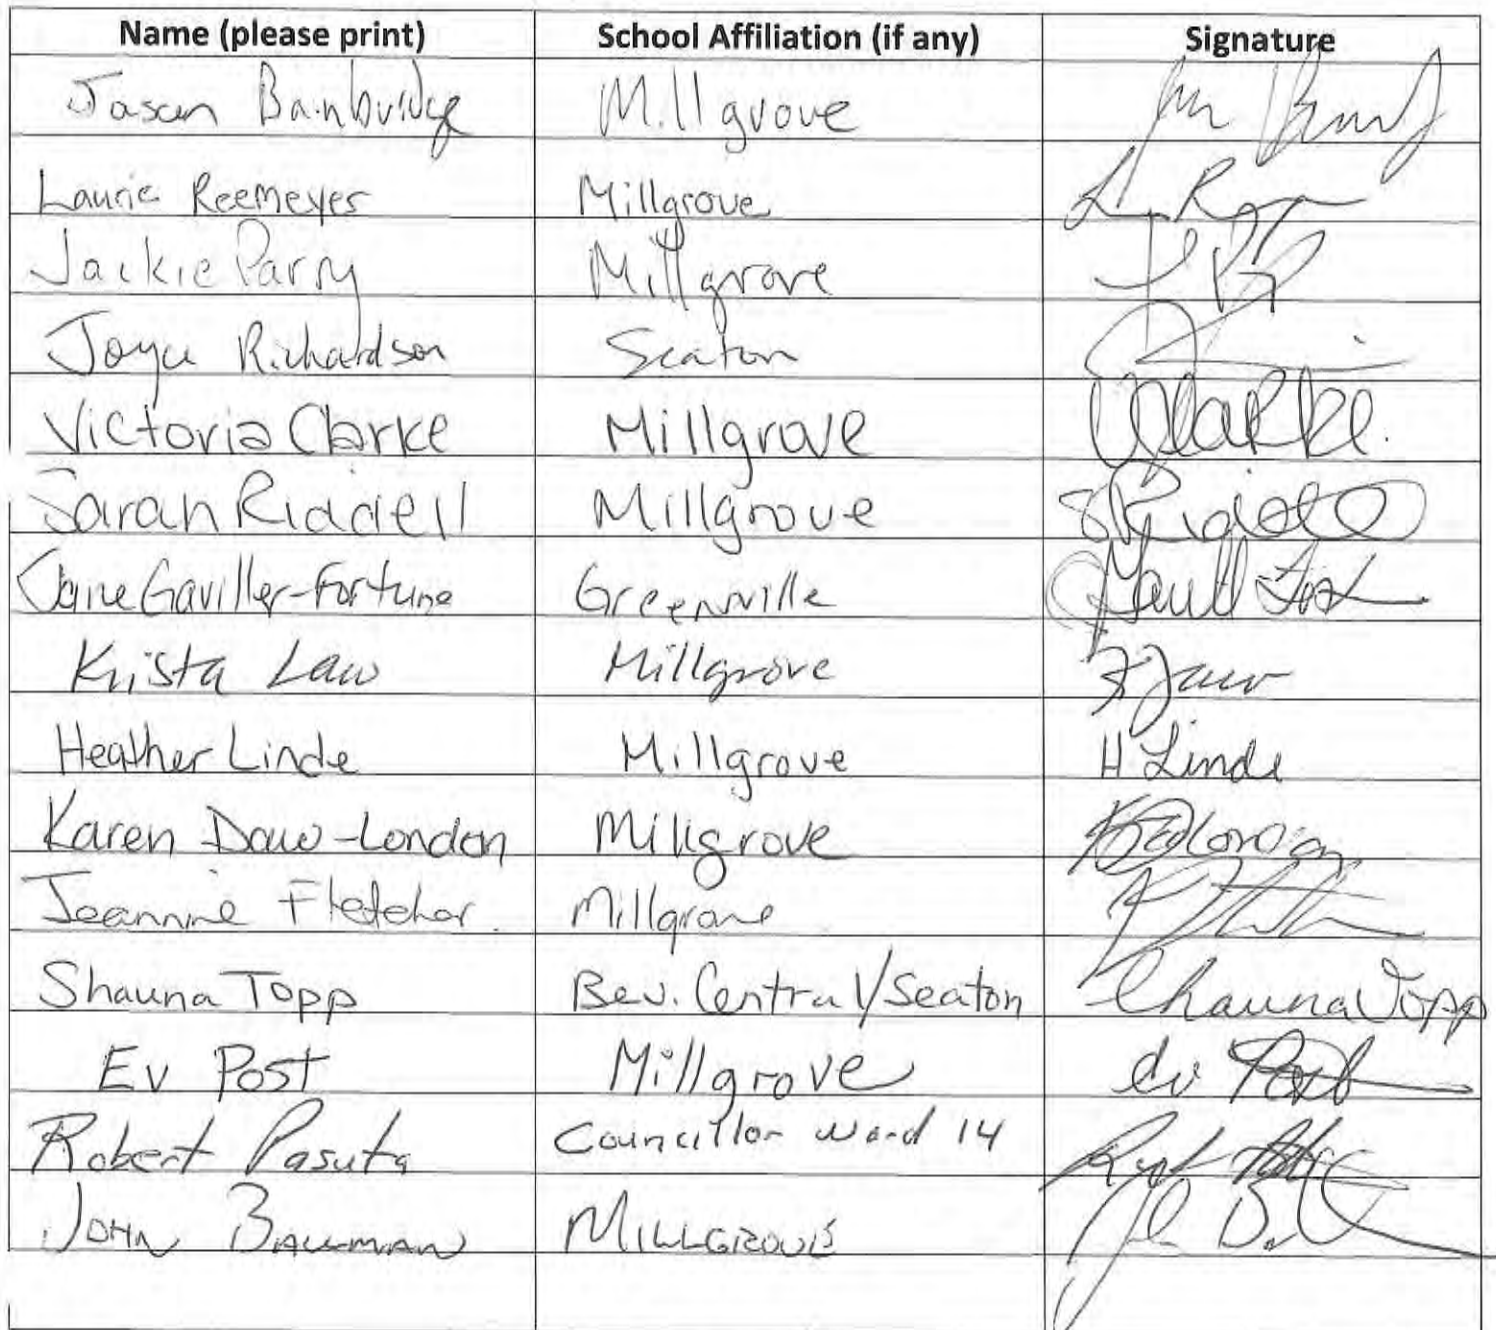 Name (please print) School Affiliation (if any) Signature
Jason Bainbridge Millgrove
Laurie Reemeyes Millgrove
Jackie Parry Millgrove
Joyce Richardson Seaton
Victoria Clarke Millgrove VClarke
Sarah Riddell Millgrove SRiddell
Jane Gaviller-Fortune Greensville
Krista Law Millgrove K Law
Heather Linde Millgrove H. Linde
Karen Daw-London Millgrove
Jeannine Fletcher Millgrove
Shauna Topp Bev. Central/Seaton Shauna Topp
Ev Post Millgrove Ev Post
Robert Pasuta Councillor Ward 14
JOHN BAUMAN MILLGROVE